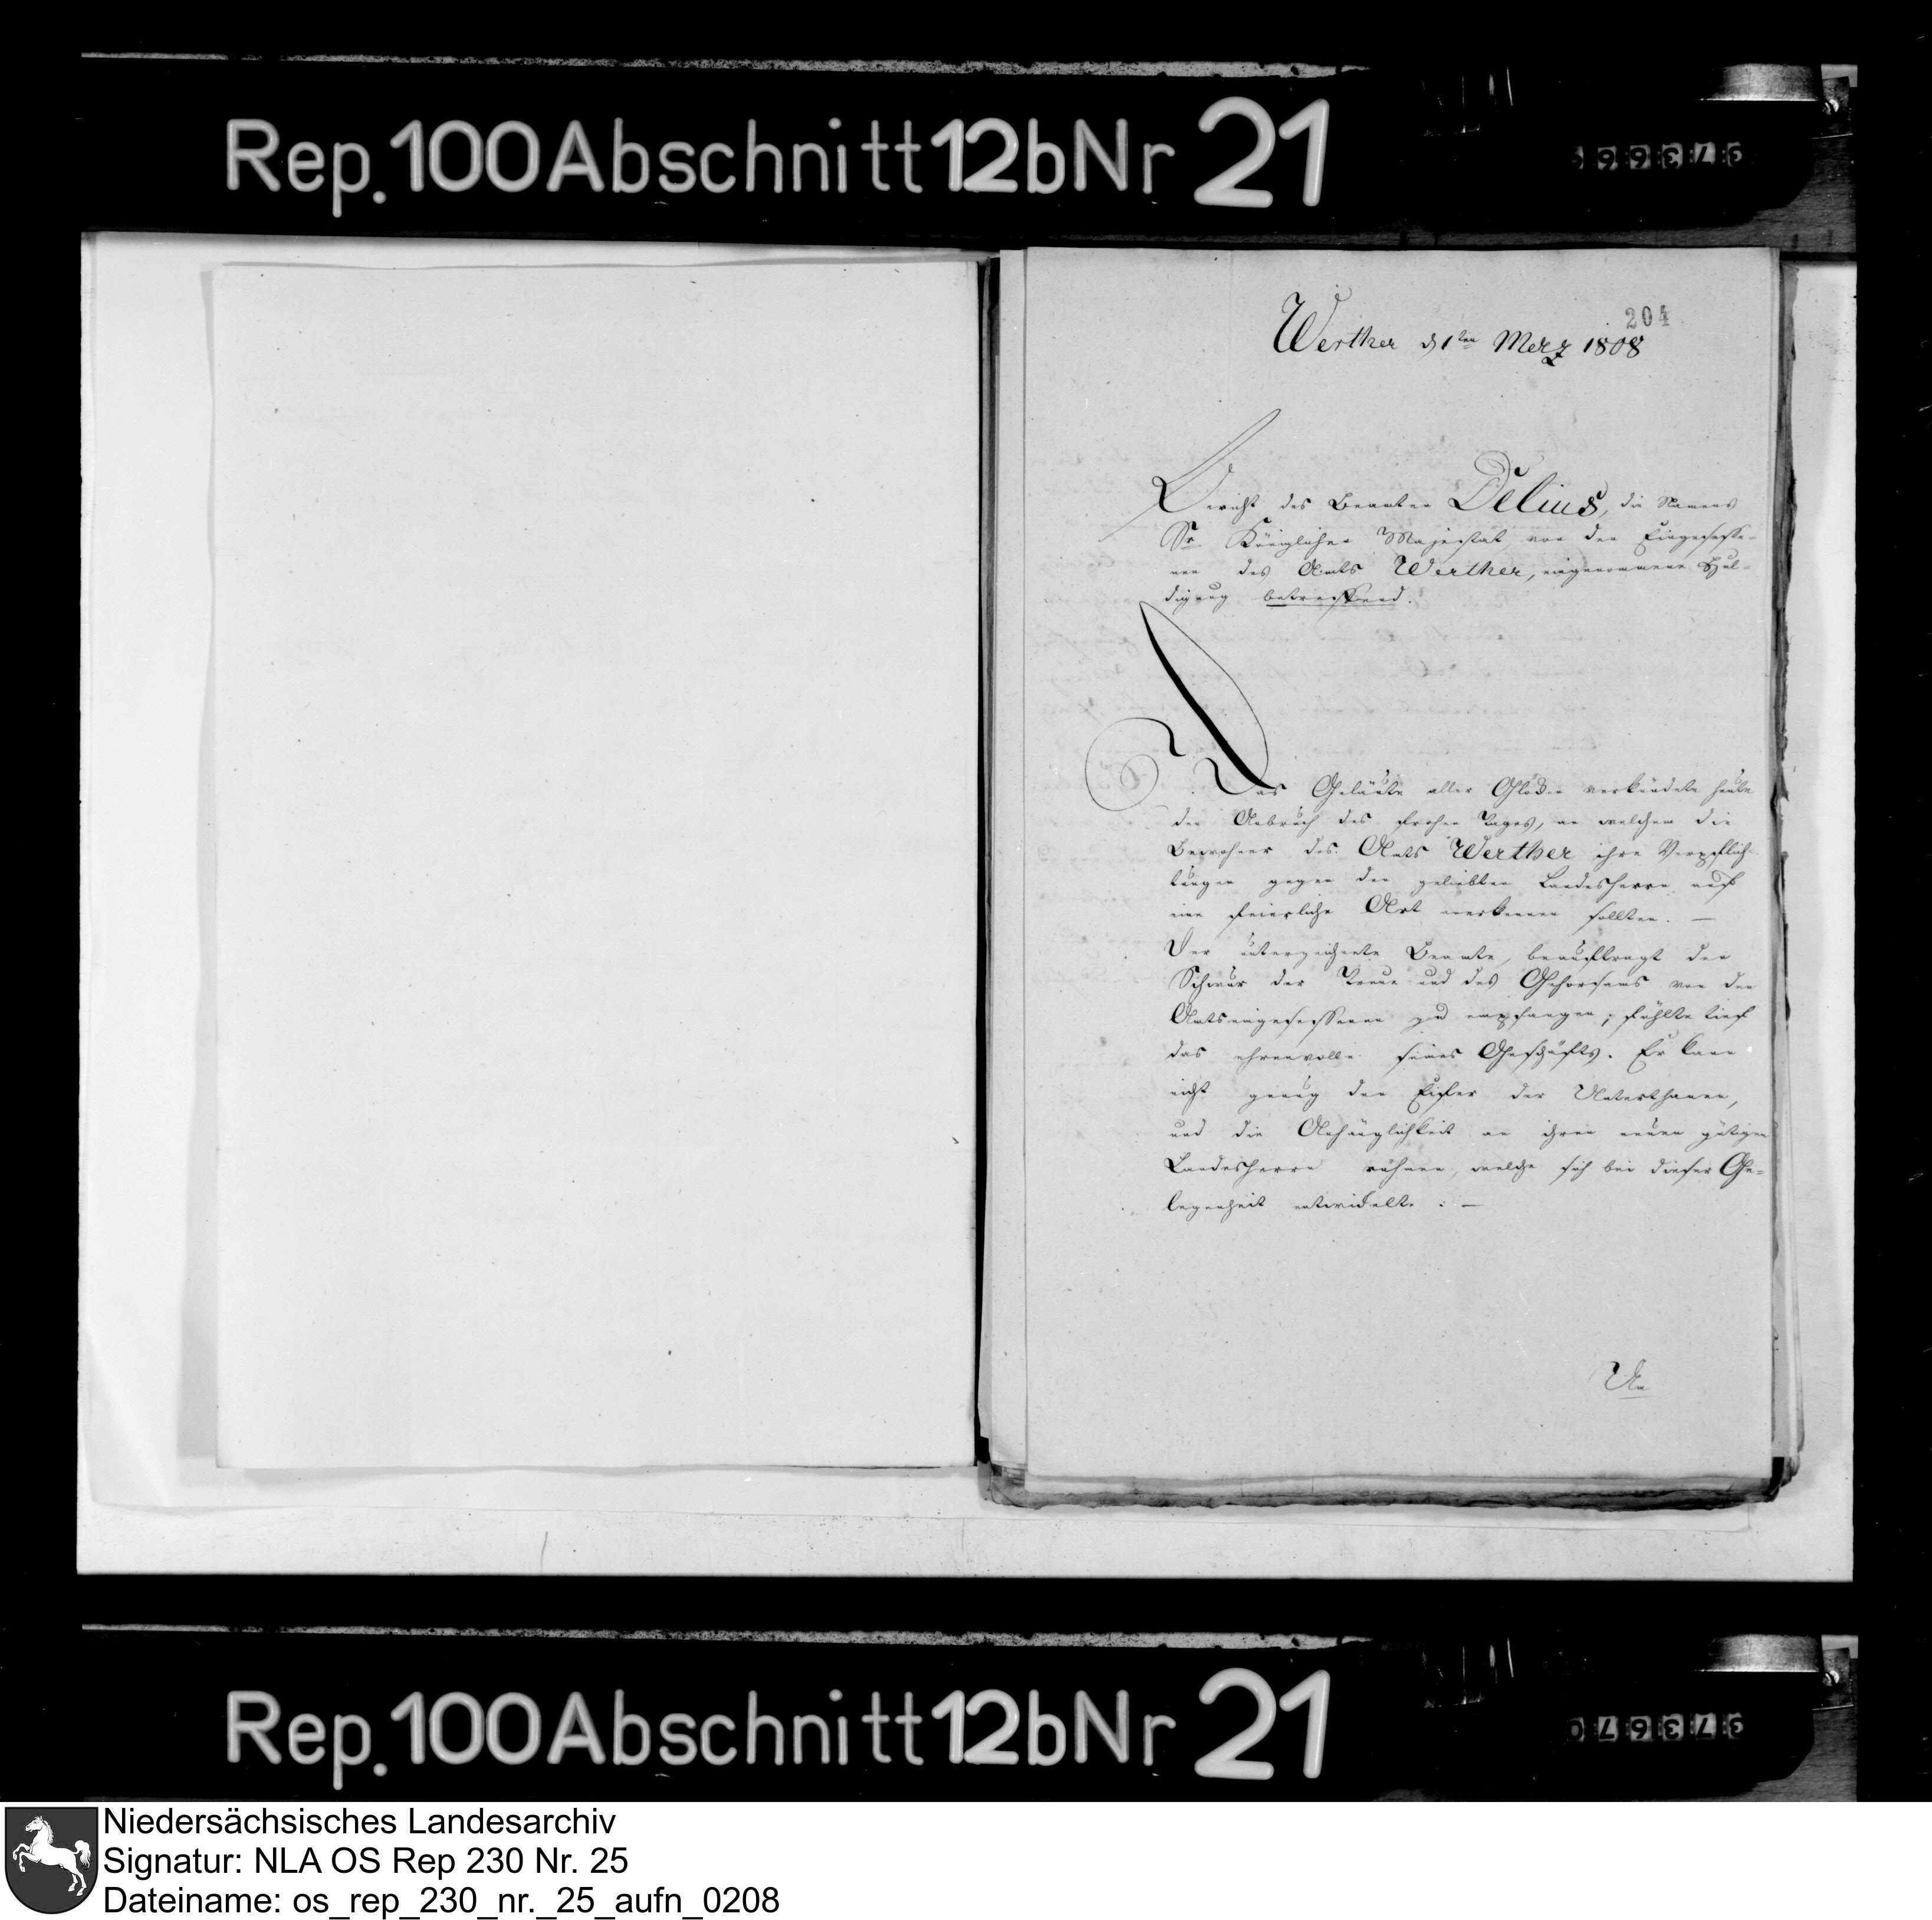 Rep. 100 Abschnitt 12b Nr 21
204
Werther d 1ten Merz 1808
Bericht des Beamten Delius, die Namens
Sr. Königlichen Majestät von den Eingesesse-
nen des Amts Werther, eingenommene Hul-
digung betreffend.
Das Geläute aller Glocken verkündete heute
den Anbruch des frohen Tages, an welchem die
Bewohner des Amts Werther ihre Verpflich-
tungen gegen den geliebten Landesherrn auf
eine feierliche Art anerkennen sollten. —
Der unterzeichnete Beamte, beauftragt den
Schwur der Treue und des Gehorsams von den
Amtseingesessenen zu empfangen, fühlte tief
das ehrenvolle seines Geschäfts. Er kann
nicht genug den Eifer der Unterthanen,
und die Anhänglichkeit an ihren neuen gütigen
Landesherrn rühmen, welche sich bei dieser Ge-
legenheit entwickelte: —
Um
Rep. 100 Abschnitt 12b Nr 21
373670
Niedersächsisches Landesarchiv
Signatur: NLA OS Rep 230 Nr. 25
Dateiname: os_rep_230_nr._25_aufn_0208